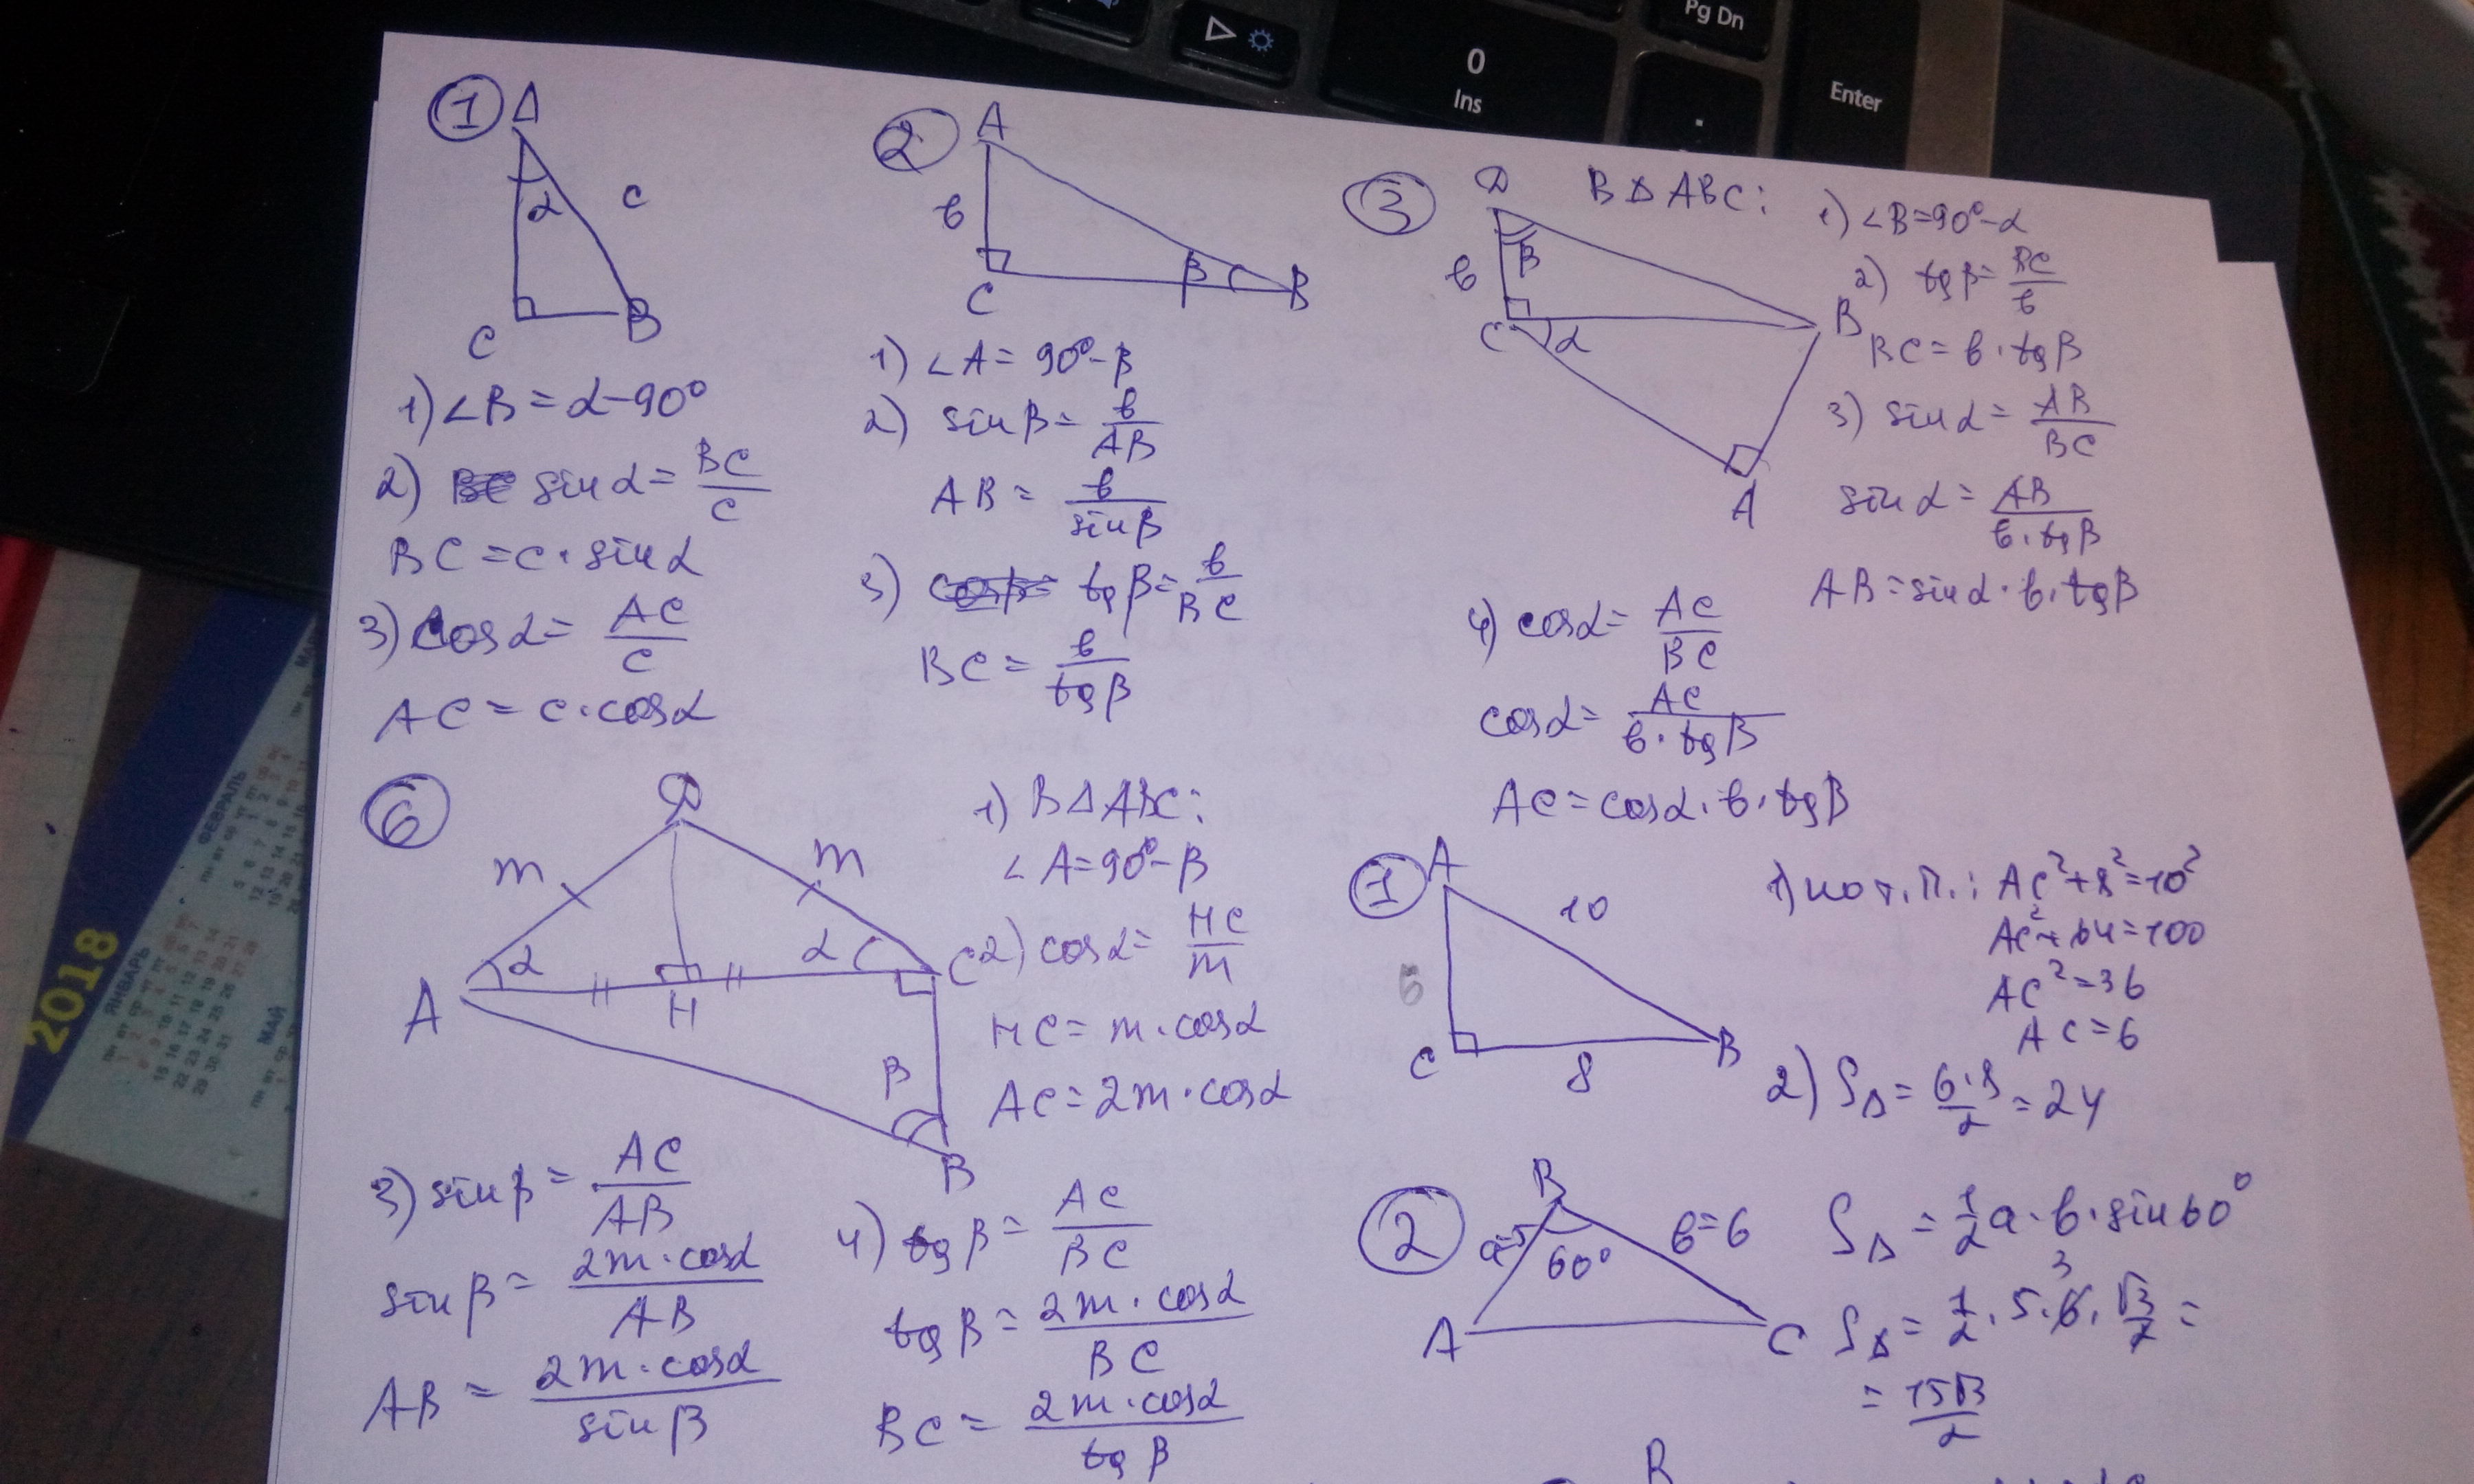 0
Ins
Pg Dn
.
Enter
2018
ЯНВАРЬ
ФЕВРАЛЬ
МАЙ
1
A
α
c
C
B
1) ∠B = α - 90°
2) sin α = BC/c
BC = c · sin α
3) cos α = AC/c
AC = c · cos α
2
A
в
C
β
B
1) ∠A = 90° - β
2) sin β = в/AB
AB = в/sin β
3) tg β = в/BC
BC = в/tg β
3
D
β
в
C
α
B
A
В Δ ABC:
1) ∠B = 90° - α
2) tg β = BC/в
BC = в · tg β
3) sin α = AB/BC
sin α = AB/в · tg β
AB = sin α · в · tg β
4) cos α = AC/BC
cos α = AC/в · tg β
AC = cos α · в · tg β
6
D
m
m
α
α
A
H
C
β
B
1) В Δ ABC:
∠A = 90° - β
2) cos α = HC/m
HC = m · cos α
AC = 2m · cos α
3) sin β = AC/AB
sin β = 2m · cos α/AB
AB = 2m · cos α/sin β
4) tg β = AC/BC
tg β = 2m · cos α/BC
BC = 2m · cos α/tg β
1
A
10
C
8
B
1) по т. П.: AC² + 8² = 10²
AC² + 64 = 100
AC² = 36
AC = 6
2) SΔ = 6·8/2 = 24
2
B
a=5
60°
в=6
A
C
SΔ = 1/2 a · в · sin 60°
SΔ = 1/2 · 5 · 6 · √3/2 =
3
= 15√3/2
B